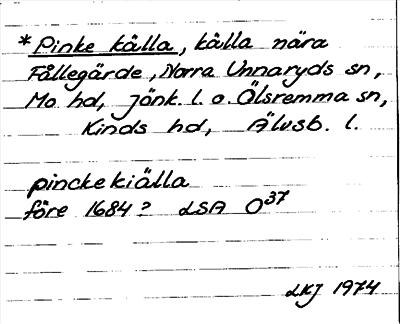 *Pinke källa, källa nära
Fållegärde, Norra Unnaryds sn,
Mo hd, Jönk. l. o. Ölsremma sn,
Kinds hd, Älvsb. l.
pinckekiälla
före 1684? LSA O37
LKJ 1974